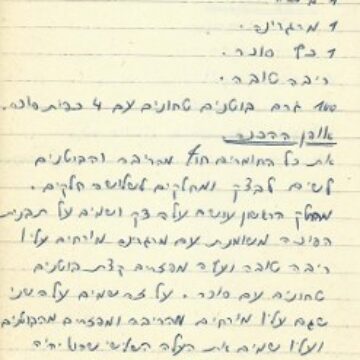 1 מרגרינה.
1 כף סוכר.
ריבה טובה.
100 גרם בוטנים טחונים עם 4 כפית סוכר.
אופן ההכנה.
את כל החומרים חוץ מהריבה והבוטנים
לשים לבצק ומחלקים לשלושה חלקים.
מחלק הראשון עושה עלה דק ושמים על תבנית
משומנת עם מרגרינה מורחים עליו
ריבה טובה ועליה מפזרים קצת בוטנים
טחונים עם סוכר. על זה שמים עלה שני
שגם עליו מורחים מהריבה ומפזרים מהבוטנים
ועליו שמים את העלה השלישי